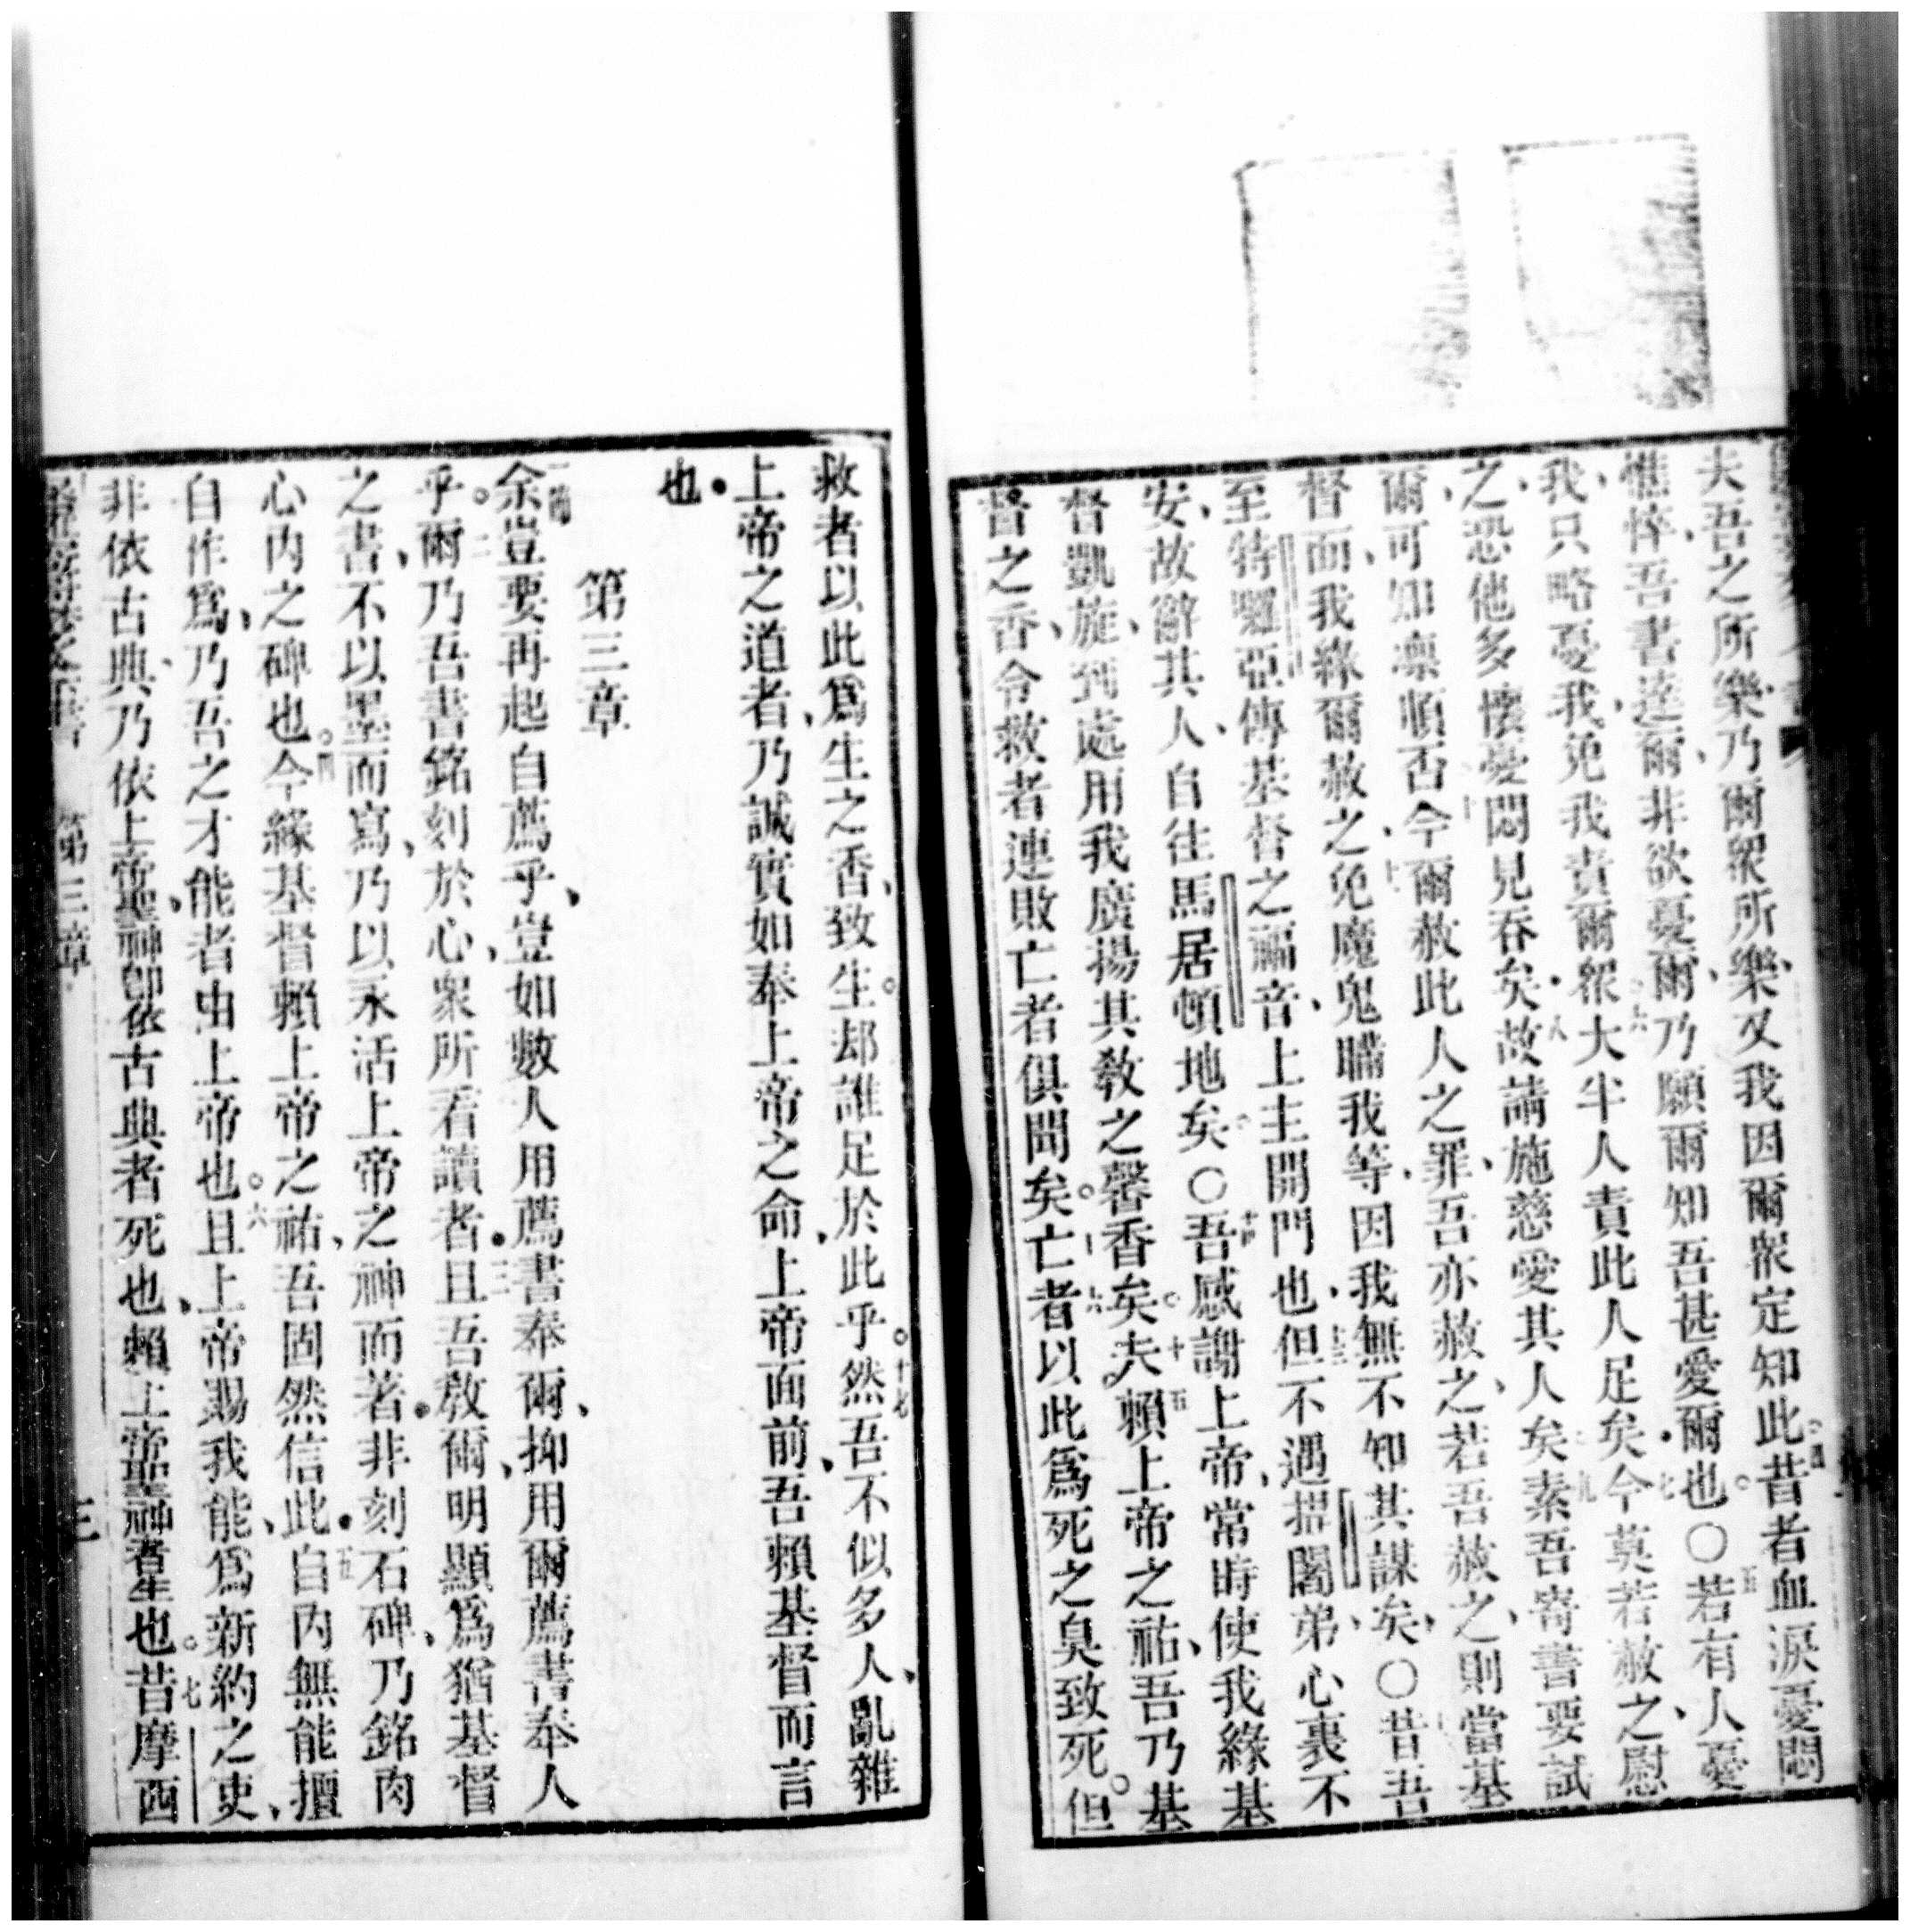 夫吾之所樂、乃爾眾所樂、又我因爾眾定知此、四昔者血淚憂悶
憔悴、吾書達爾、非欲憂爾、乃願爾知吾甚愛爾也。〇五若有人憂
我、只略憂我、免我責爾眾、六大半人責此人足矣、七今莫若赦之、慰
之、恐他多懷憂悶見吞矣、八故請施慈愛其人矣、九素吾寄書要試
爾、可知凜順否、十今爾赦此人之罪、吾亦赦之、若吾赦之、則當基
督面、我緣爾赦之、十一免魔鬼瞞我等、因我無不知其謀矣、〇十二昔吾
至特囉亞傳基督之福音、上主開門也、十三但不遇抯闍弟、心裏不
安、故辭其人、自往馬居頓地矣。〇十四吾感謝上帝、常時使我緣基
督凱旋、到處用我廣揚其教之馨香矣。十五夫賴上帝之祐、吾乃基
督之香、令救者連敗亡者俱聞矣。十六亡者以此爲死之臭致死。但
救者以此爲生之香、致生。却誰足於此乎。十七然吾不似多人、亂雜
上帝之道者、乃誠實如奉上帝之命、上帝面前、吾賴基督而言
也。
第三章
一余豈要再起自薦乎、豈如數人用薦書奉爾、抑用爾薦書奉人
乎。二爾乃吾書銘刻於心、眾所看讀者。三且吾教爾、明顯爲猶基督
之書、不以墨而寫、乃以永活上帝之神而著。非刻石碑、乃銘肉
心內之碑也。四今緣基督賴上帝之祐、吾固然信此。五自內無能擅
自作爲、乃吾之才能者由上帝也。六且上帝賜我能、爲新約之吏、
非依古典、乃依上帝聖神、卽依古典者死也、賴上帝聖神者生也。七昔摩西
第三章 三